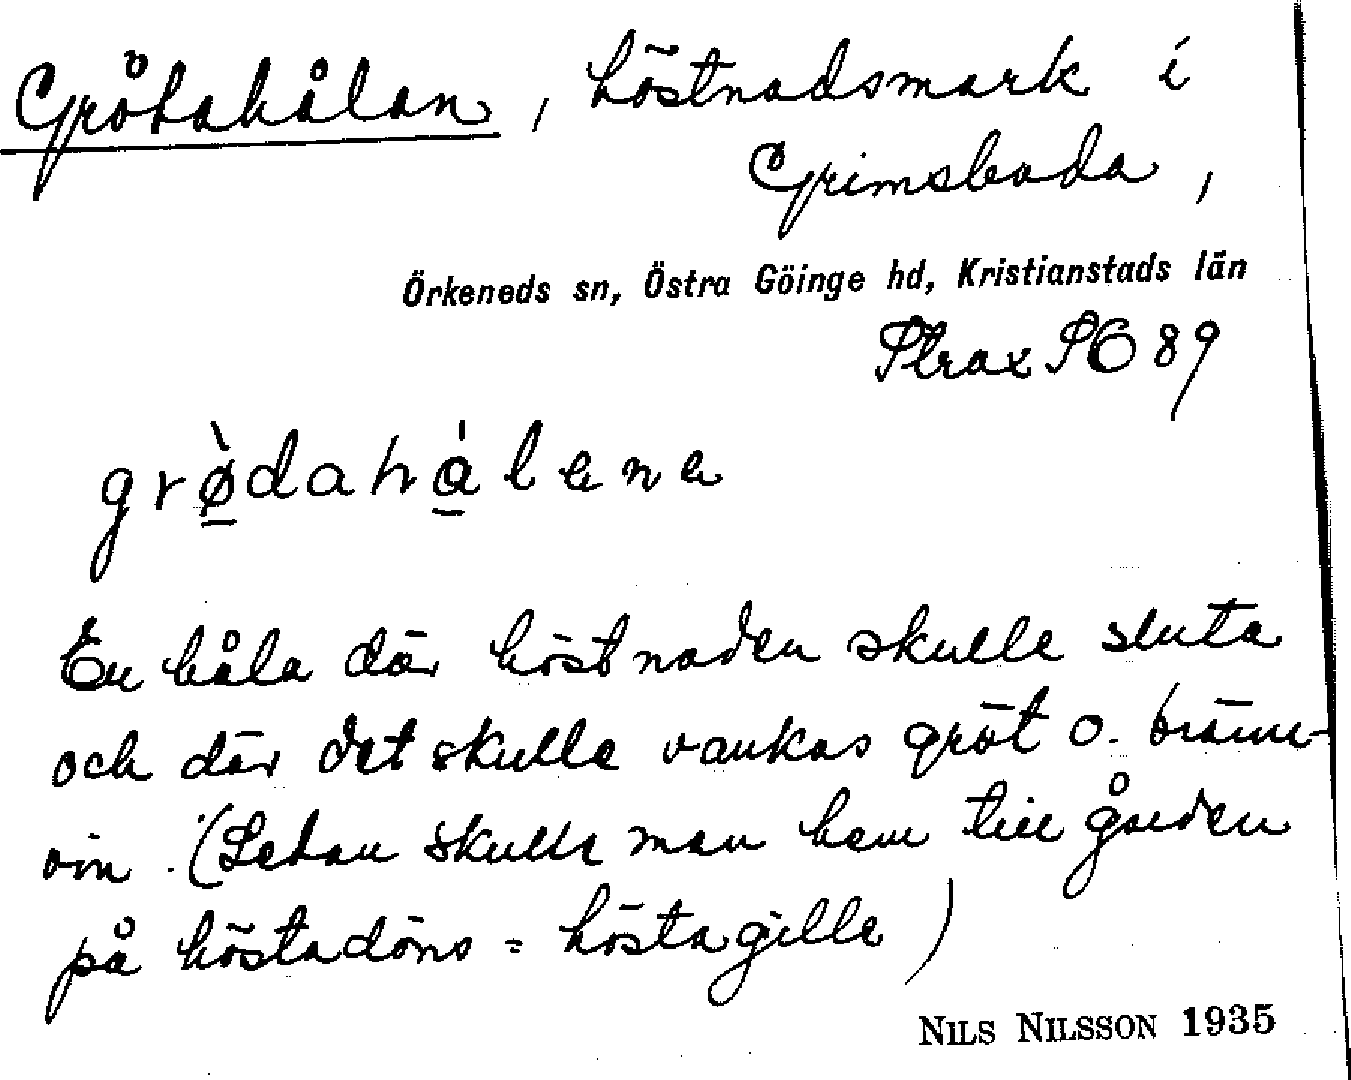 Grötahålan, höstnadsmark i
Grimsboda,
Örkeneds sn, Östra Göinge hd, Kristianstads län
Strax SO 89
grø̀dahålene
En håla där höstnaden skulle sluta
och där det skulle vankas gröt o. bränn-
vin. (Sedan skulle man hem till gården
på höstadöns = höstagille)
NILS NILSSON 1935